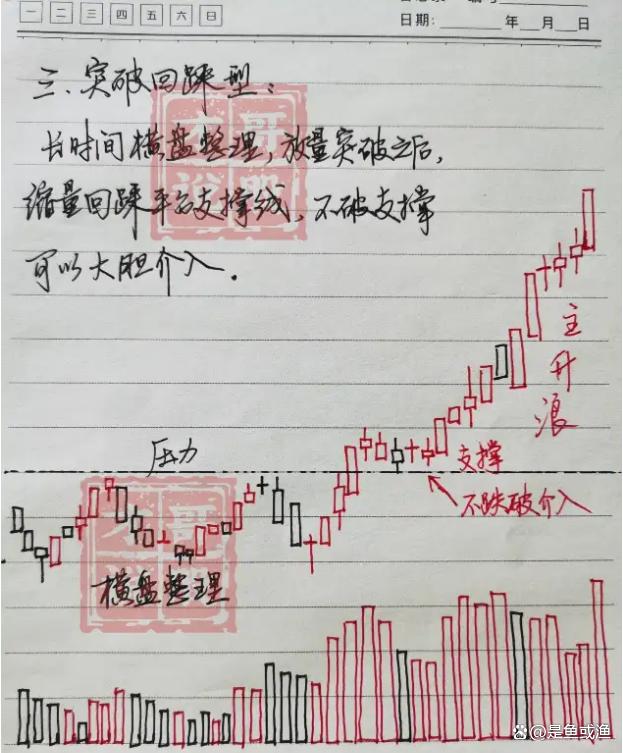 一 二 三 四 五 六 日
日期: 年 月 日
三、突破回踩型:
长时间横盘整理,放量突破之后,
缩量回踩平台支撑线,不破支撑
可以大胆介入.
压力
主升浪
支撑
不跌破介入
横盘整理
是鱼或渔